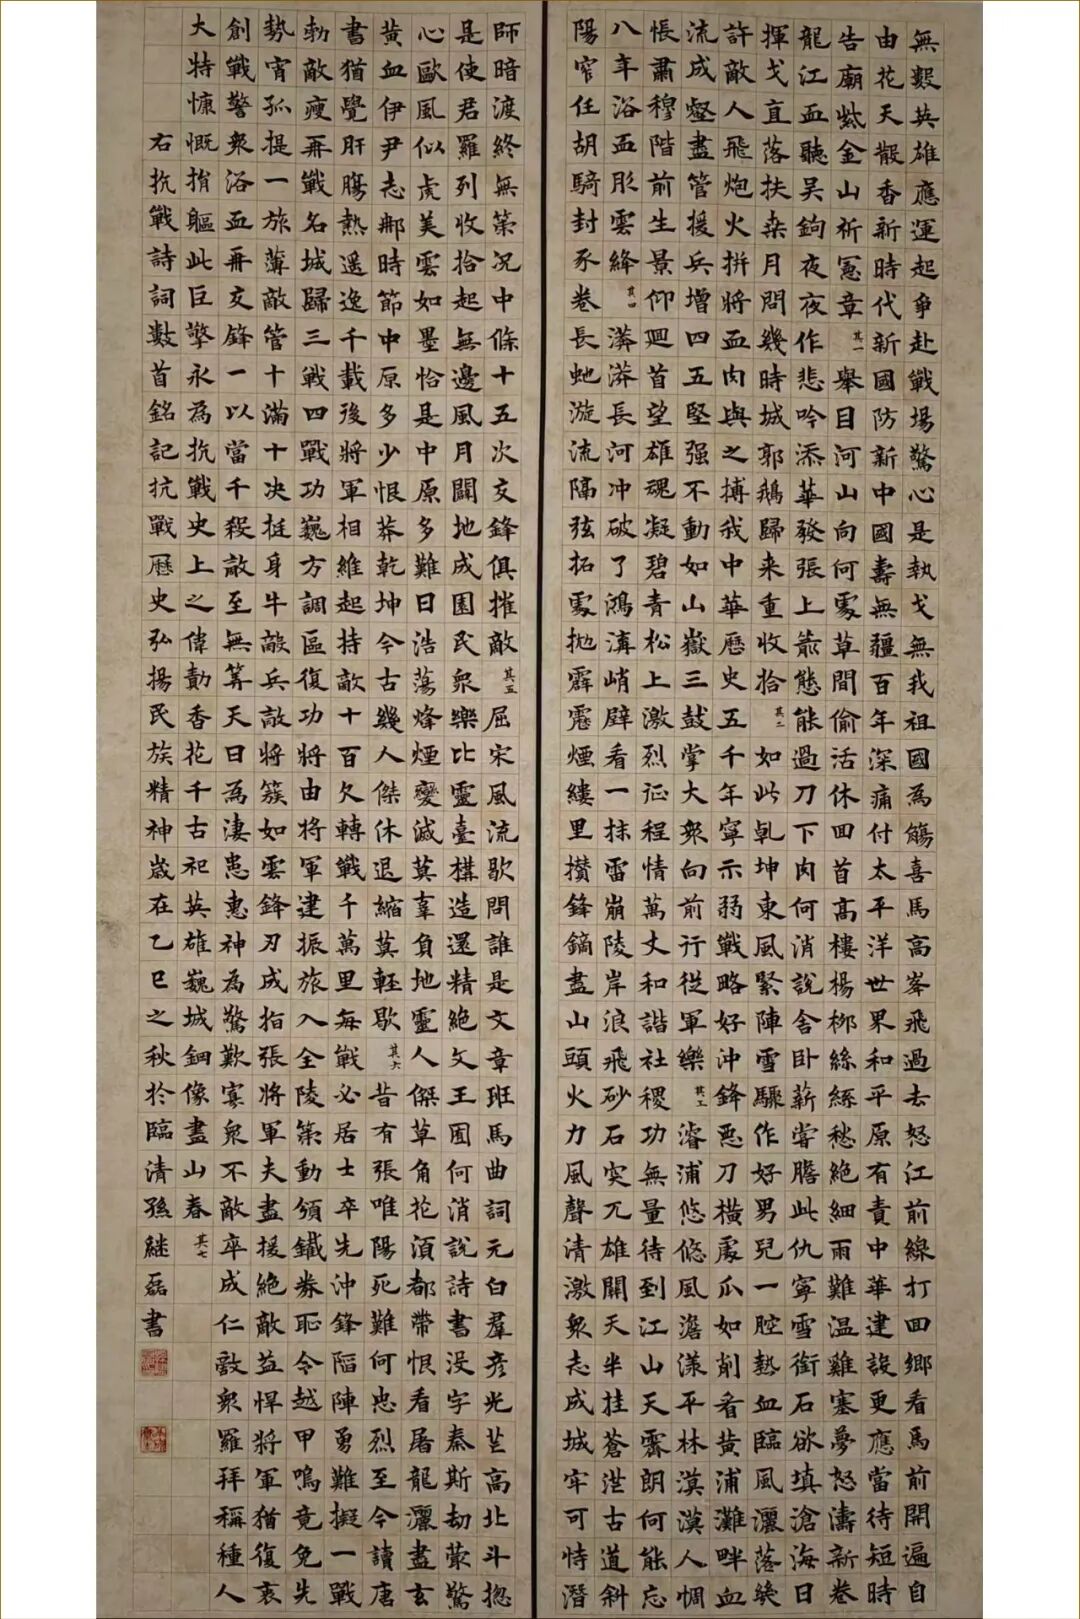 無數英雄應運起爭赴戰場驚心是執戈無我祖國為觴喜馬高峯飛過去怒江前線打回鄉看馬前開遍自
由花天散香新時代新國防新中國壽無疆百年深痛付太平洋世界和平原有責中華建設更應當待短時
告廟紫金山祈憲章其一舉目河山向何處草間偷活休回首高樓楊柳絲絲愁絕細雨難溫雞塞夢怒濤新卷
龍江血聽吳鉤夜夜作悲吟添華發張上箭態能過刀下肉何消說舍卧薪嘗膽此仇寧雪銜石欲填滄海日
揮戈直落扶桑月問幾時城郭鵝歸来重收拾其二如此乾坤東風緊陣雪驟作好男兒一腔熱血臨風灑落矣
許敵人飛炮火拼將血肉與之搏我中華歷史五千年寧示弱戰略好沖鋒惡刀橫處瓜如削看黄浦灘畔血
流成壑盡管援兵增四五堅强不動如山嶽三鼓掌大衆向前行從軍樂其三濬浦悠悠風澹漾平林漠漠人惆
悵肅穆階前生景仰廻首望雄魂凝碧青松上激烈征程情萬丈和諧社稷功無量待到江山天霽朗何能忘
八年浴血彤雲絳其四漭漭長河冲破了鴻溝峭壁看一抹雷崩陵岸浪飛砂石突兀雄關天半挂蒼茫古道斜
陽窄任胡騎封豕卷長虵漩流隔弦拓處拋霹靂煙縷里攢鋒鏑盡山頭火力風聲清激衆志成城牢可恃潛
師暗渡終無策況中條十五次交鋒俱摧敵其五屈宋風流歇問誰是文章班馬曲詞元白羣彦光芒高北斗揔
是使君羅列收拾起無邊風月闢地成園民衆樂比靈臺構造還精絶文王囿何消說詩書没字秦斯劫蒙驚
心歐風似虎美雲如墨恰是中原多難日浩蕩烽煙變滅莫辜負地靈人傑草角花湏都帶恨看屠龍灑盡玄
黄血伊尹志郍時節中原多少恨莽乾坤今古幾人傑休退縮莫輕歇其六昔有張唯陽死難何忠烈至今讀唐
書猶覺肝腸熱遥逸千載後將軍相維起持敵十百欠轉戰千萬里每戰必居士卒先沖鋒陷陣勇難擬一戰
勑敵瘦再戰名城歸三戰四戰功巍方調區復功將由將軍建振旅入全陵策動頒鐵券恥令越甲鳴竟免先
勢宵孤提一旅薄敵管十滿十决挺身牛敵兵敵將簇如雲鋒刃成指張將軍夫盡援絶敵益悍將軍猶復衷
創戰警衆浴血再交鋒一以當千殺敵至無筭天日為淒悲惠神為驚歎寡衆不敵卒成仁敵衆羅拜稱種人
大特慷慨捐軀此巨擎永為抗戰史上之偉勣香花千古祀英雄巍城銅像盡山春其七
右抗戰詩詞數首銘記抗戰歷史弘揚民族精神歲在乙巳之秋於臨清孫継磊書